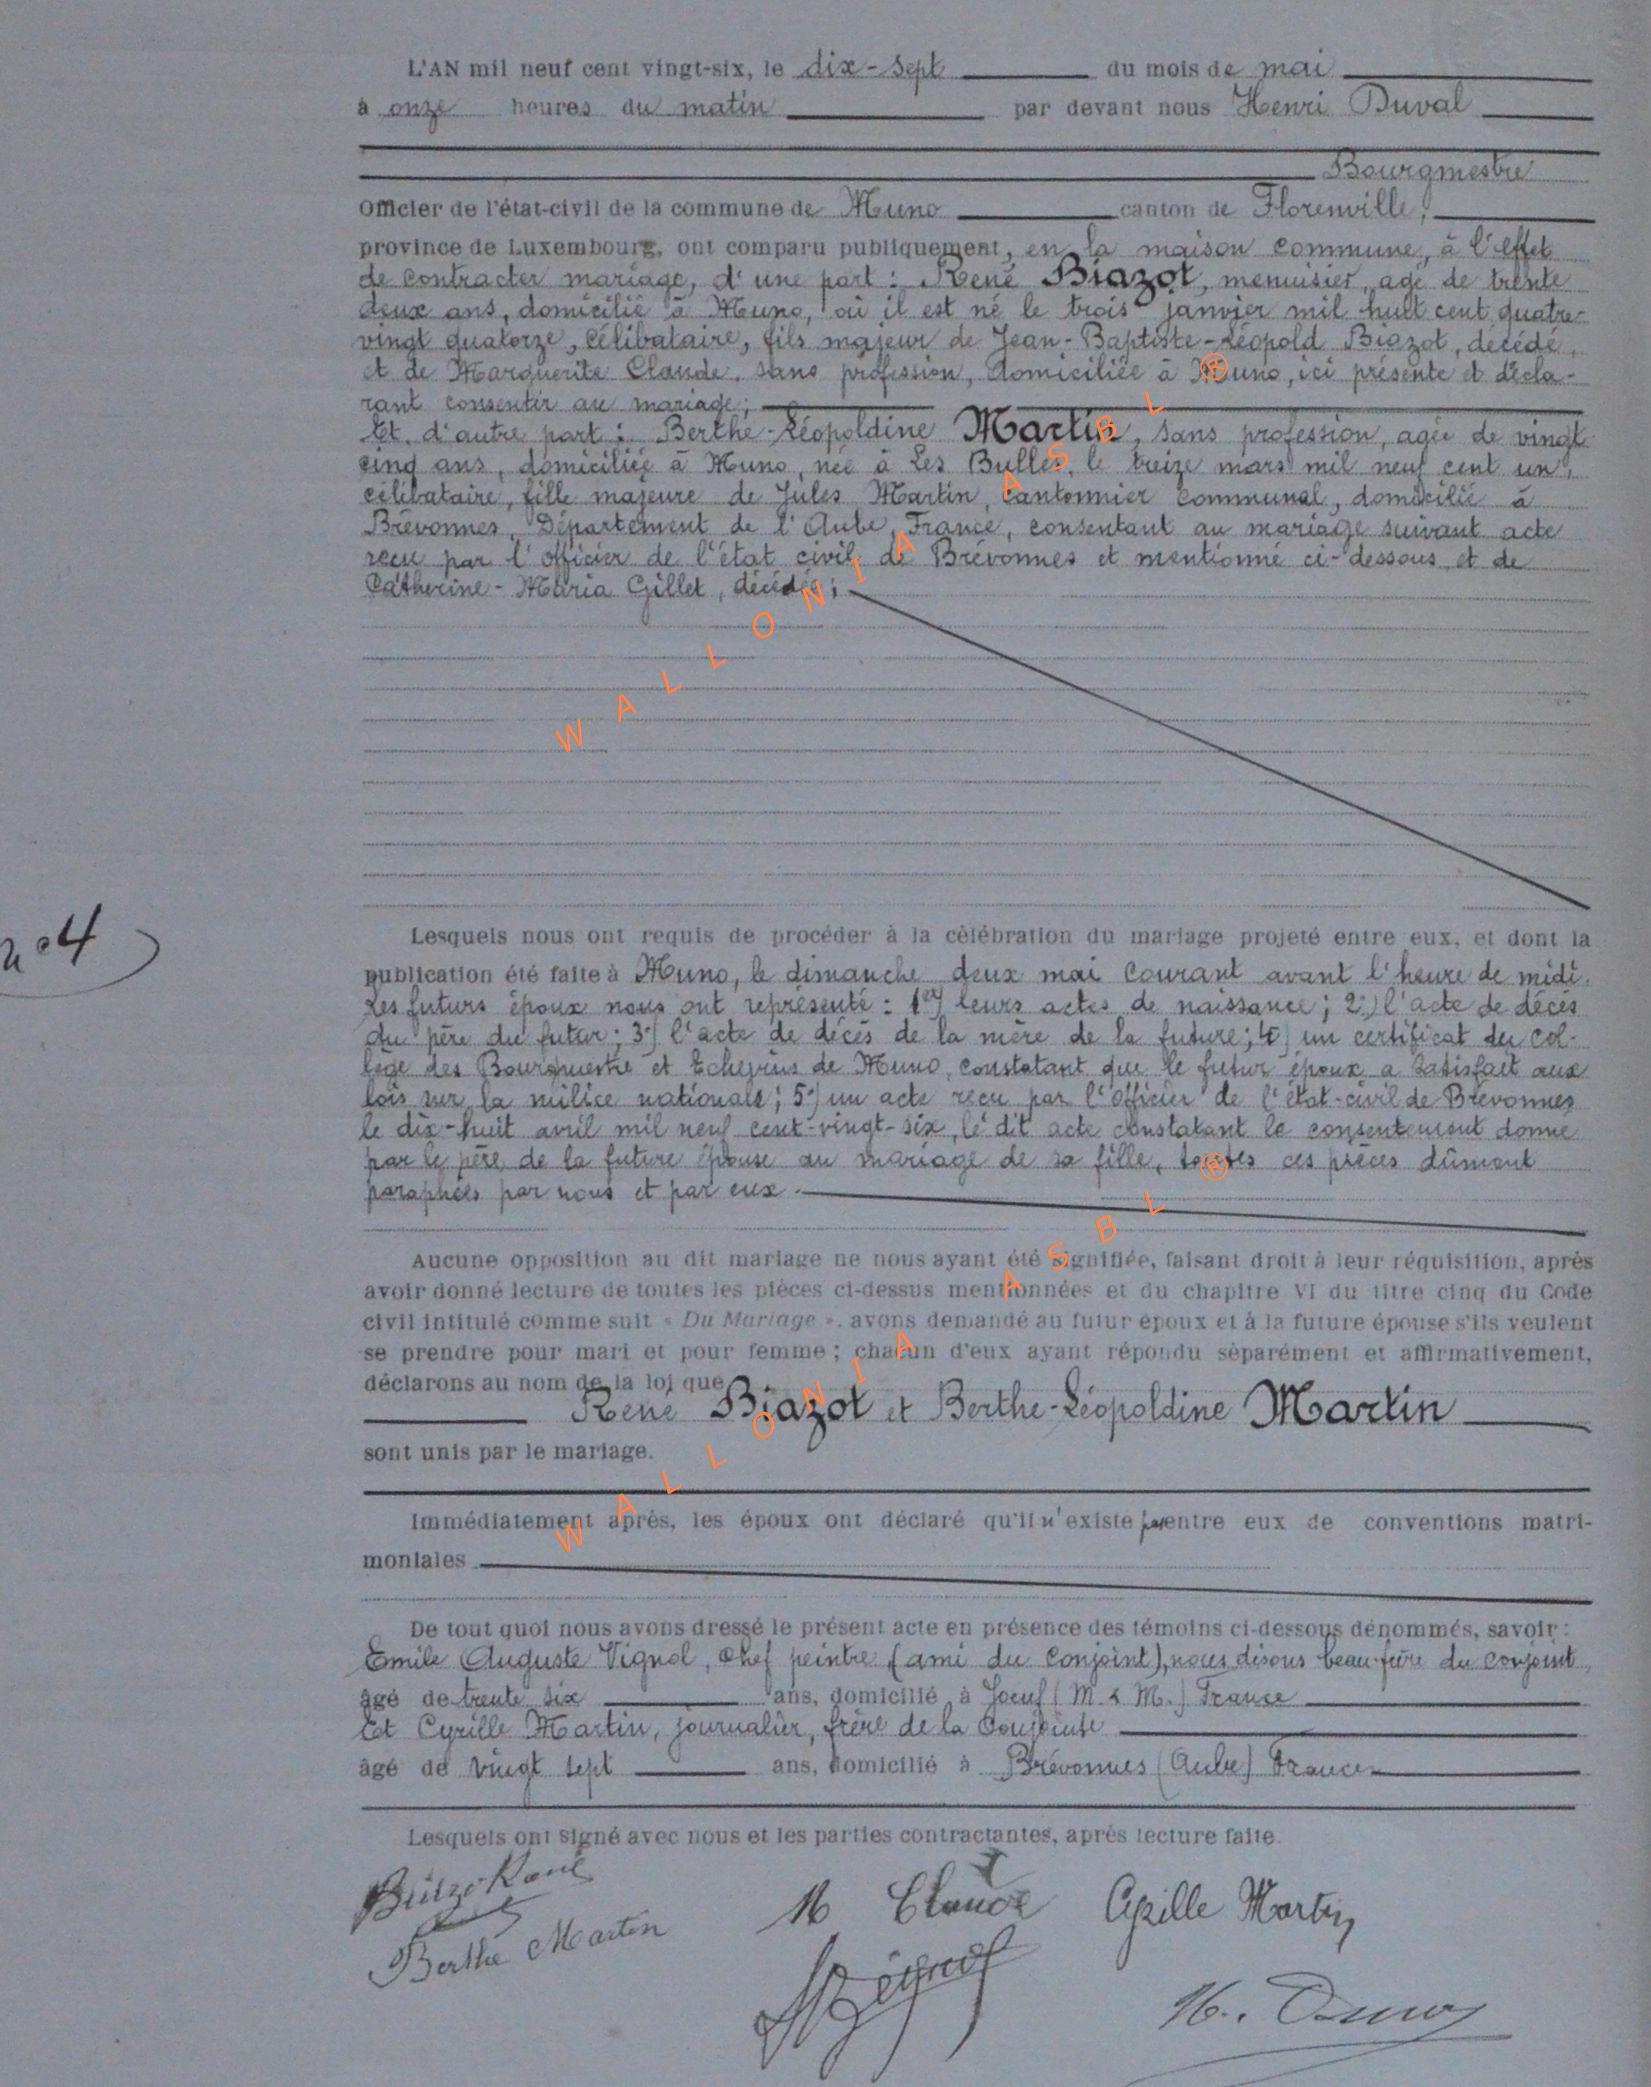 L'AN mil neuf cent vingt-six, le dix-sept du mois de mai
à onze heures du matin par devant nous Henri Duval
Bourgmestre
Officier de l'état-civil de la commune de Muno canton de Florenville,
province de Luxembourg, ont comparu publiquement, en la maison commune, à l'effet
de contracter mariage, d'une part : René Biazot, menuisier, agé de trente
deux ans, domicilié à Muno, où il est né le trois janvier mil huit cent quatre-
vingt quatorze, célibataire, fils majeur de Jean-Baptiste-Léopold Biazot, décédé,
et de Marguerite Claude, sans profession, domiciliée à Muno, ici présente et décla-
rant consentir au mariage ;
Et, d'autre part : Berthe-Léopoldine Martin, sans profession, agée de vingt
cinq ans, domiciliée à Muno, née à Les Bulles, le treize mars mil neuf cent un,
célibataire, fille majeure de Jules Martin, cantonnier communal, domicilié à
Brévonnes, Département de l'Aube, France, consentant au mariage suivant acte
reçu par l'officier de l'état civil de Brévonnes et mentionné ci-dessous et de
Catherine-Maria Gillet, décédée ;
n° 4
Lesquels nous ont requis de procéder à la célébration du mariage projeté entre eux, et dont la
publication été faite à Muno, le dimanche deux mai courant avant l'heure de midi.
Les futurs époux nous ont représenté : 1er) leurs actes de naissance ; 2°) l'acte de décès
du père du futur ; 3°) l'acte de décès de la mère de la future ; 4°) un certificat du Col-
lège des Bourgmestre et Echevins de Muno, constatant que le futur époux a satisfait aux
lois sur la milice nationale ; 5°) un acte reçu par l'officier de l'état-civil de Brévonnes
le dix-huit avril mil neuf cent-vingt-six, le dit acte constatant le consentement donné
par le père de la future épouse au mariage de sa fille, toutes ces pièces dûment
paraphées par nous et par eux.
Aucune opposition au dit mariage ne nous ayant été signifiée, faisant droit à leur réquisition, après
avoir donné lecture de toutes les pièces ci-dessus mentionnées et du chapitre VI du titre cinq du Code
civil intitulé comme suit « Du Mariage », avons demandé au futur époux et à la future épouse s'ils veulent
se prendre pour mari et pour femme ; chacun d'eux ayant répondu séparément et affirmativement,
déclarons au nom de la loi que
René Biazot et Berthe-Léopoldine Martin
sont unis par le mariage.
Immédiatement après, les époux ont déclaré qu'il n'existe pas entre eux de conventions matri-
moniales
De tout quoi nous avons dressé le présent acte en présence des témoins ci-dessous dénommés, savoir :
Emile Auguste Vignol, chef peintre (ami du conjoint), nous disons beau-frère du conjoint,
âgé de trente six ans, domicilié à Joeuf (M. & M.) France
Et Cyrille Martin, journalier, frère de la conjointe
âgé de vingt sept ans, domicilié à Brévonnes (Aube) France
Lesquels ont signé avec nous et les parties contractantes, après lecture faite.
René
M Claude Cyrille Martin
Berthe Martin
WALLONIA ASBL ®
WALLONIA ASBL ®